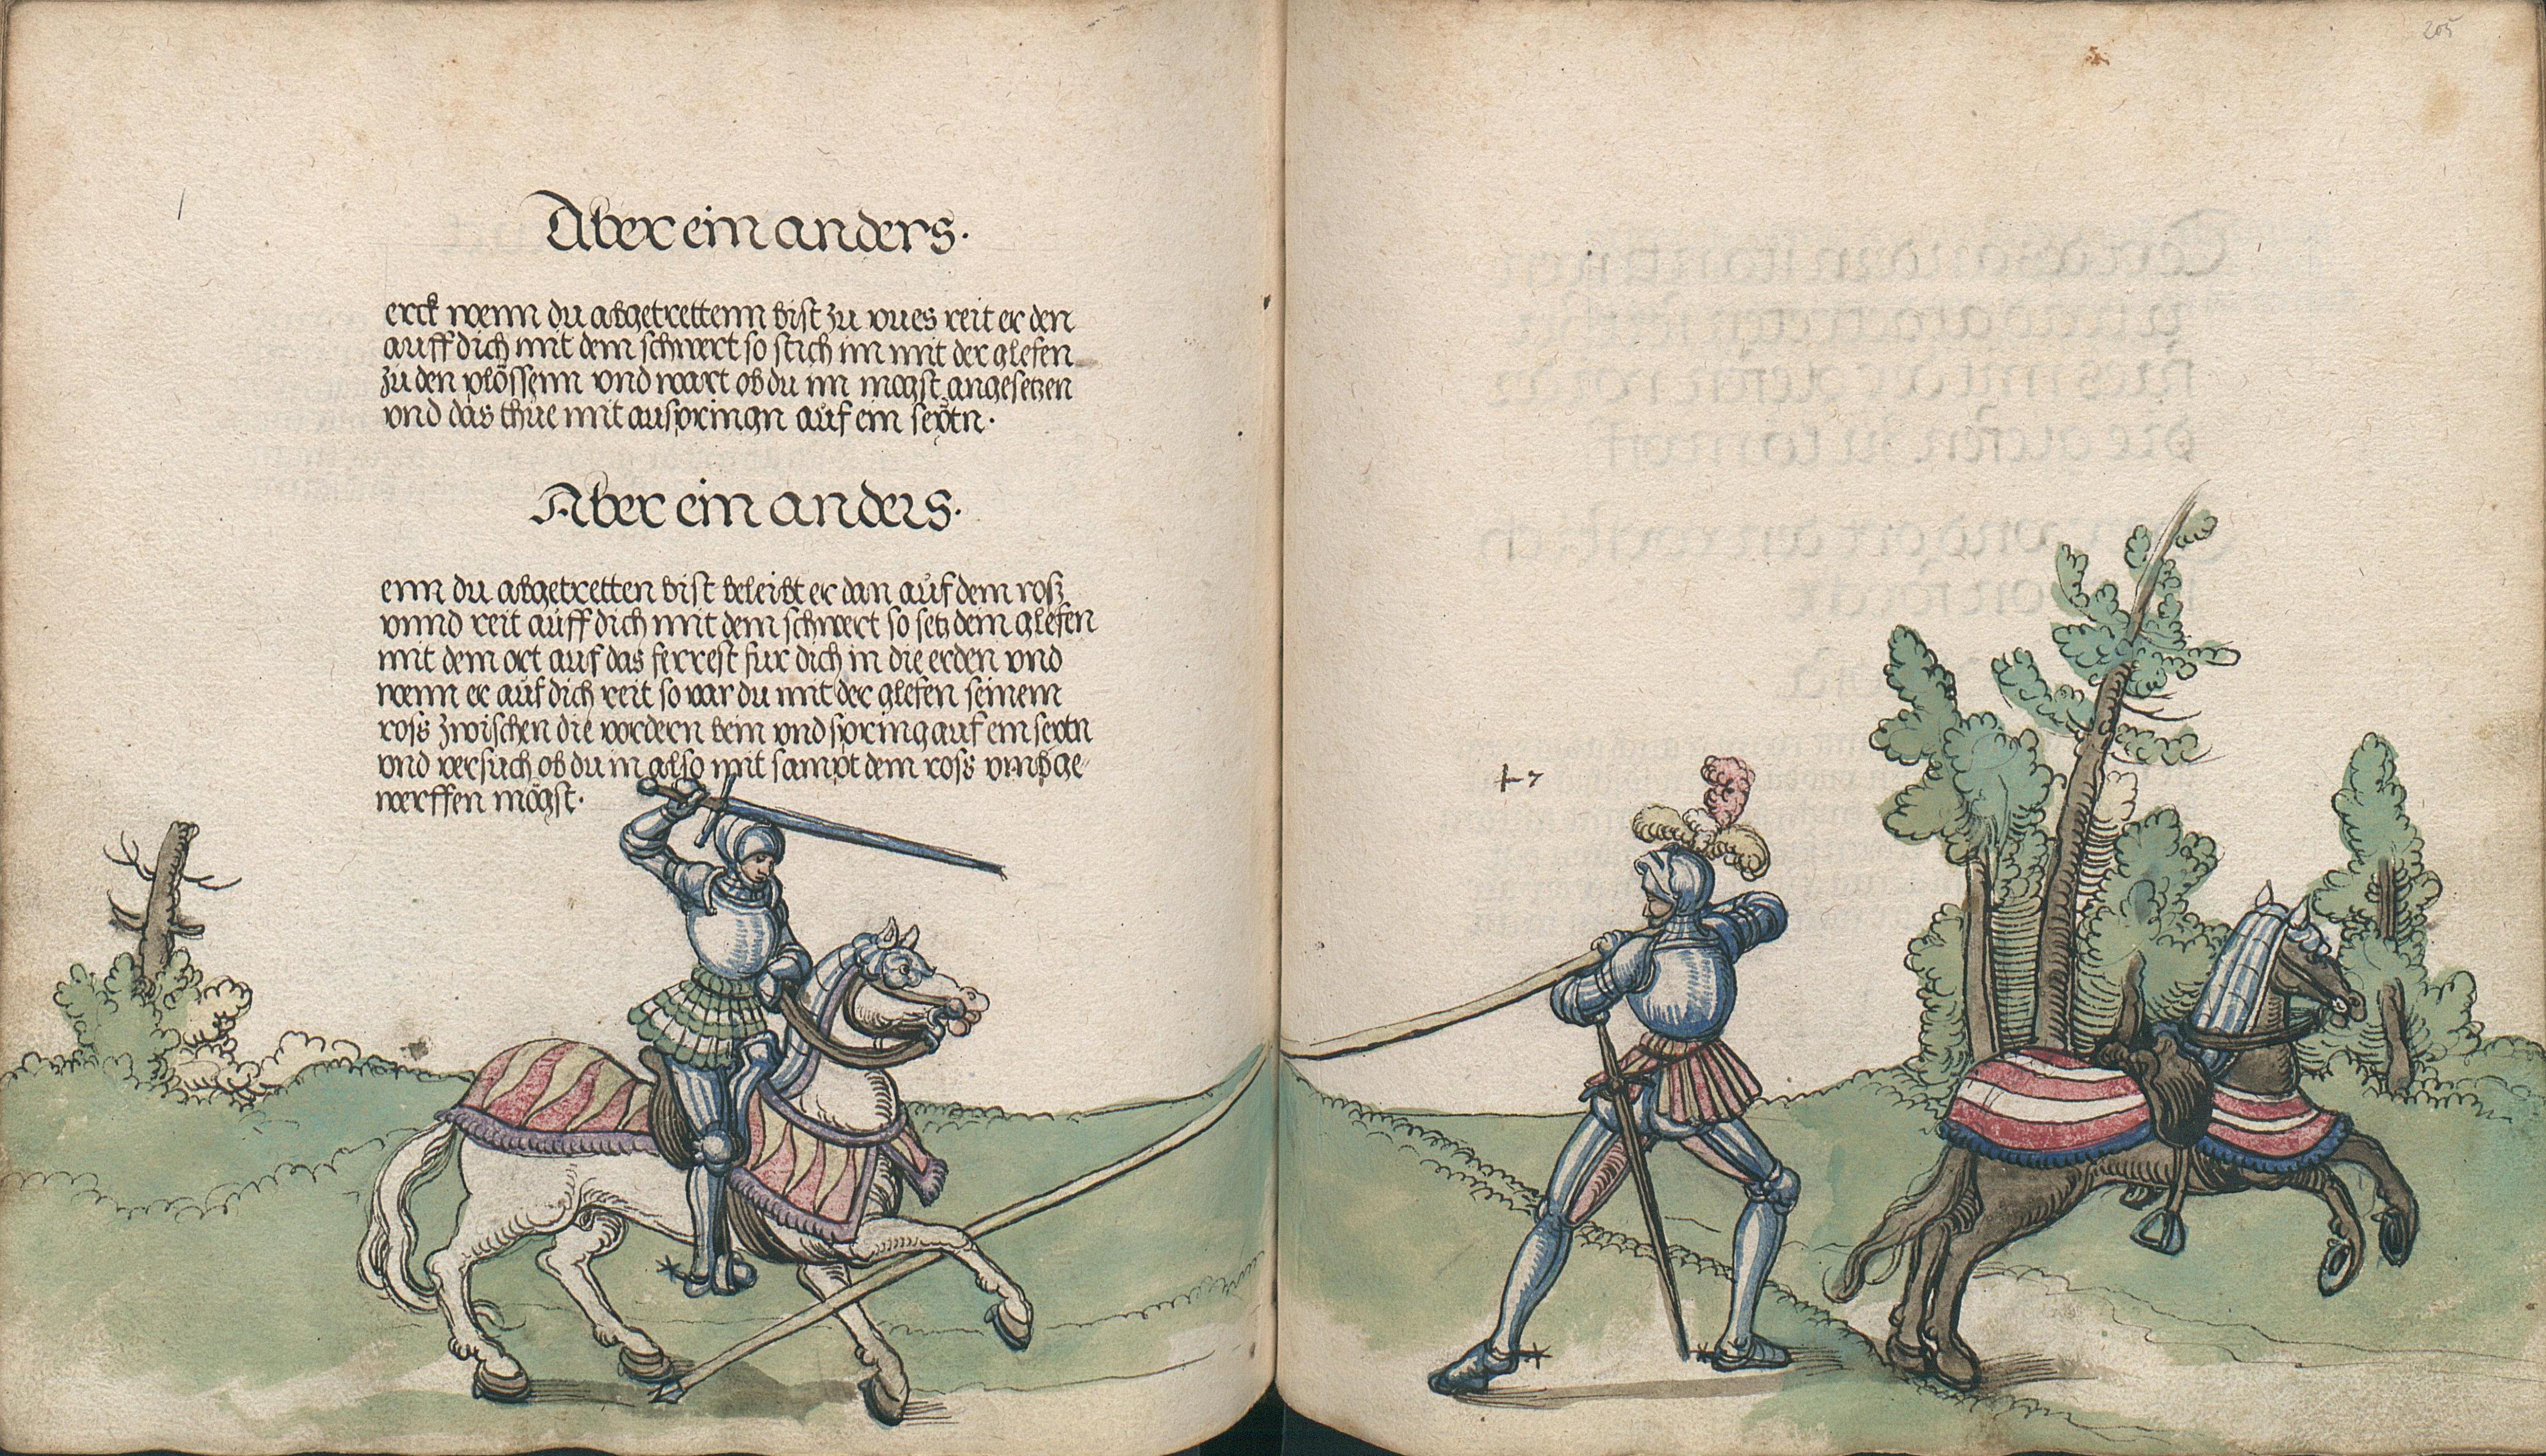 Aber ein anders.
erck wenn du abgetrettenn bist zu vues reit er den
auff dich mit dem schwert so stich im mit der glefen
zu den plössenn vnd wart ob du im mogst angesetzen
vnd das thue mit ausprinngn auf ein seytn.
Aber ein anders.
enn du abgetretten bist beleibt er dan auf dem rosz
vnnd reit auff dich mit dem schwert so setz dein glefen
mit dem ort auf das ferrest fur dich in die erden vnd
wenn er auf dich reit so var du mit der glefen seinem
ross zwischen die vordern bein vnd spring auf ein seytn
vnd versuch ob du in also mit sampt dem ross vmbge-
werffen mögst.
205